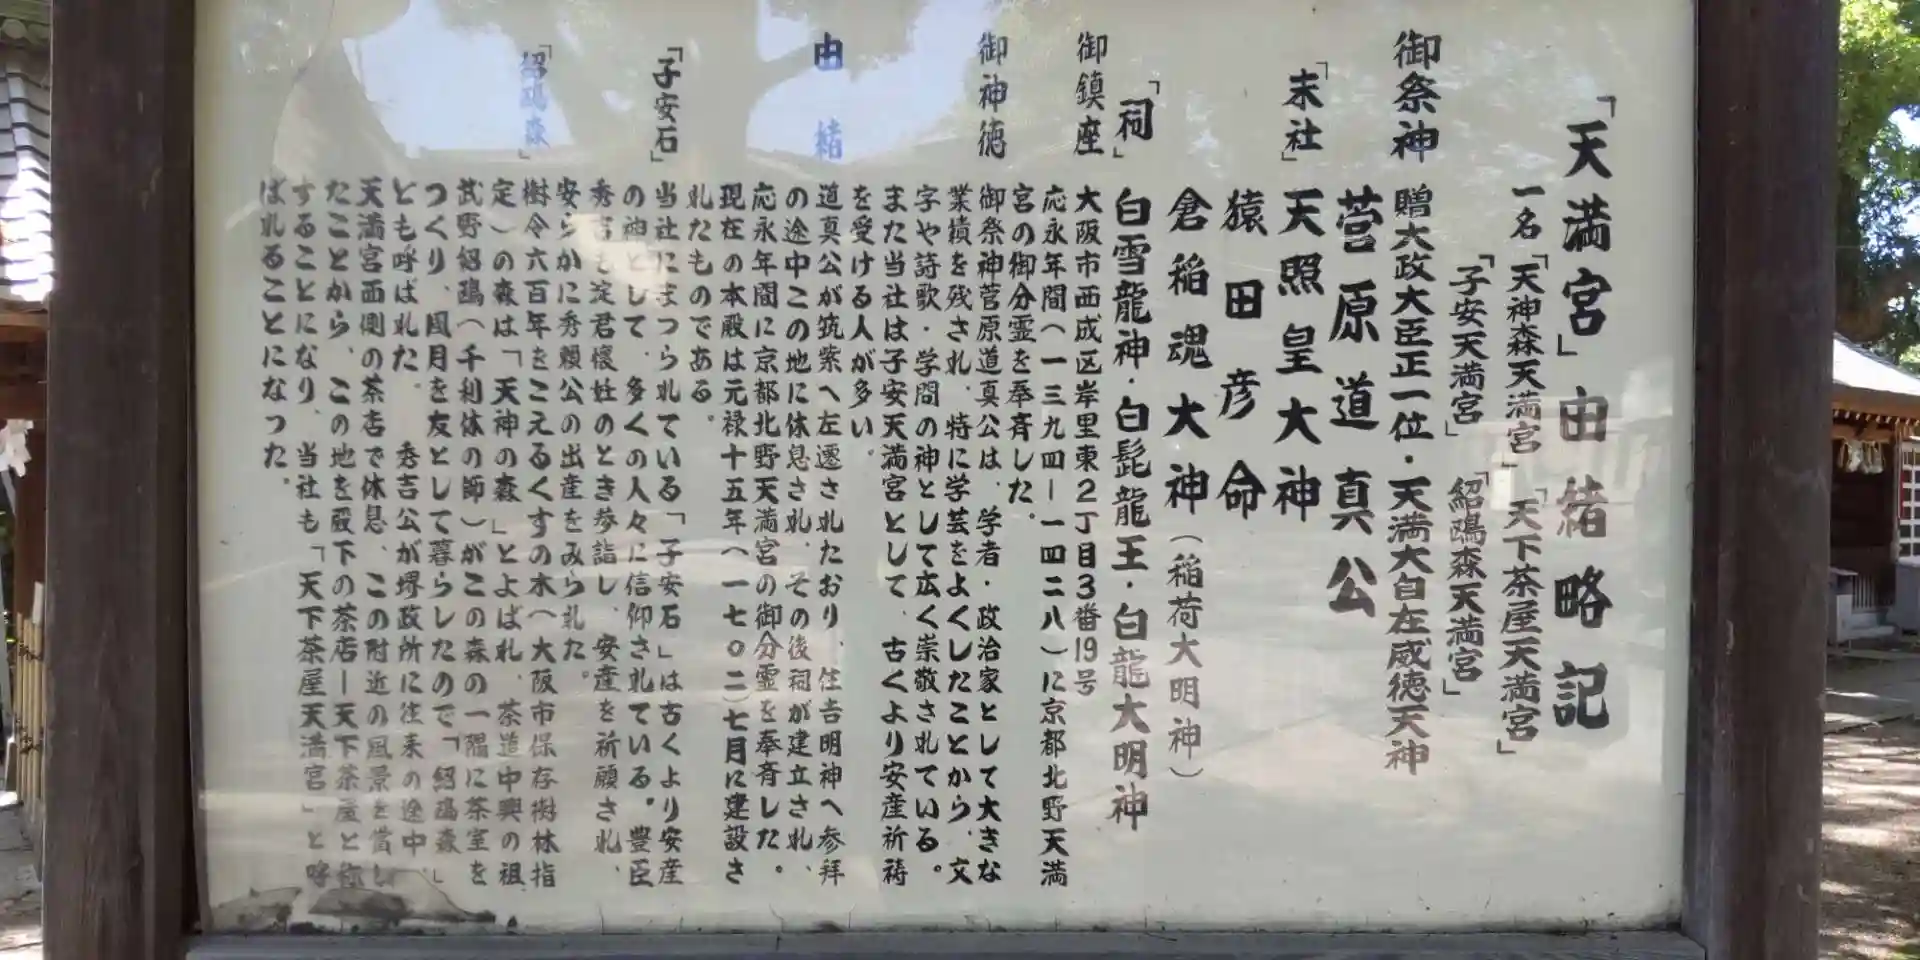 「天満宮」由緒略記
一名「天神森天満宮」「天下茶屋天満宮」
「子安天満宮」「紹鴎森天満宮」
御祭神 贈大政大臣正一位・天満大自在威徳天神
菅原道真公
「末社」天照皇大神
猿田彦命
倉稲魂大神(稲荷大明神)
「祠」白雪龍神・白髭龍王・白龍大明神
御鎮座 大阪市西成区岸里東2丁目3番19号
応永年間(一三九四ー一四二八)に京都北野天満
宮の御分霊を奉斉した。
御神徳 御祭神菅原道真公は、学者・政治家として大きな
業績を残され、特に学芸をよくしたことから、文
字や詩歌・学問の神として広く崇敬されている。
また当社は子安天満宮として、古くより安産祈祷
を受ける人が多い。
由緒 道真公が筑紫へ左遷されたおり、住吉明神へ参拝
の途中この地に休息され、その後祠が建立され、
応永年間に京都北野天満宮の御分霊を奉斉した。
現在の本殿は元禄十五年(一七〇二)七月に建設さ
れたものである。
「子安石」当社にまつられている「子安石」は古くより安産
の神として、多くの人々に信仰されている。豊臣
秀吉も淀君懐妊のとき参詣し、安産を祈願され、
安らかに秀頼公の出産をみられた。
「紹鴎森」樹令六百年をこえるくすの木(大阪市保存樹林指
定)の森は「天神の森」とよばれ、茶道中興の祖
武野紹鴎(千利休の師)がこの森の一隅に茶室を
つくり、風月を友として暮らしたので「紹鴎森」
とも呼ばれた。 秀吉公が堺政所に往来の途中、
天満宮西側の茶店で休息、この附近の風景を賞し
たことから、この地を殿下の茶店ー天下茶屋と称
することになり、当社も「天下茶屋天満宮」と呼
ばれることになった。